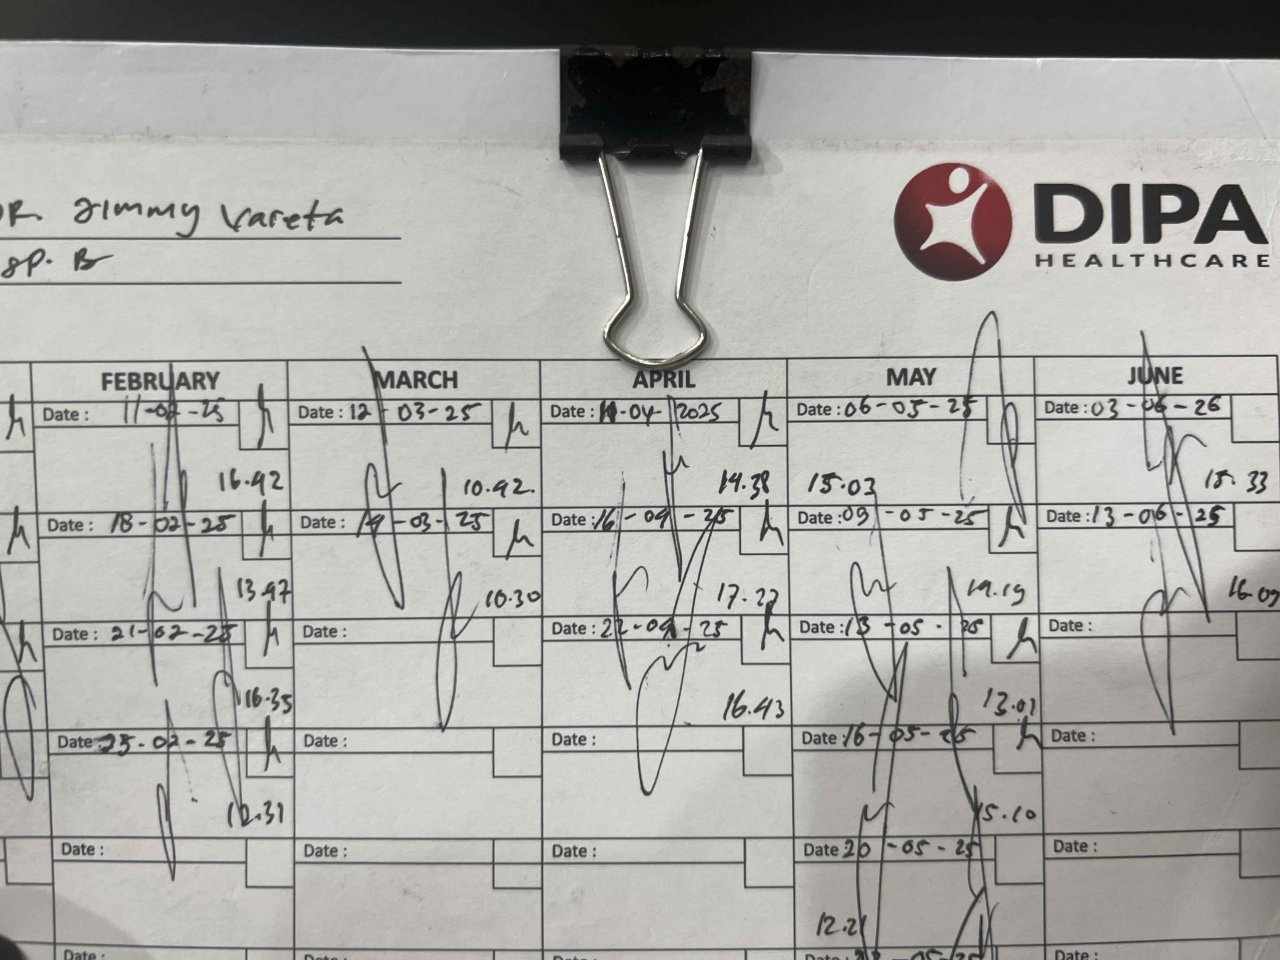 DR. Jimmy Vareta
SP. B
DIPA
HEALTHCARE
FEBRUARY MARCH APRIL MAY JUNE
Date : 11-02-25 Date : 12-03-25 Date : -04-2025 Date : 06-05-25 Date : 03-06-26
16.42 10.42. 14.38 15.03 15.33
Date : 18-02-25 Date : 19-03-25 Date : 16-04-25 Date : 09-05-25 Date : 13-06-25
13.47 10.30 17.27 14.19 16.09
Date : 21-02-25 Date : Date : 22-04-25 Date : 13-05-25 Date :
16.35 16.43 13.01
Date 25-02-25 Date : Date : Date : 16-05-25 Date :
12.31 15.10
Date : Date : Date : Date 20-05-25 Date :
12.21
Date : Date : Date : Date : -05-25 Date :